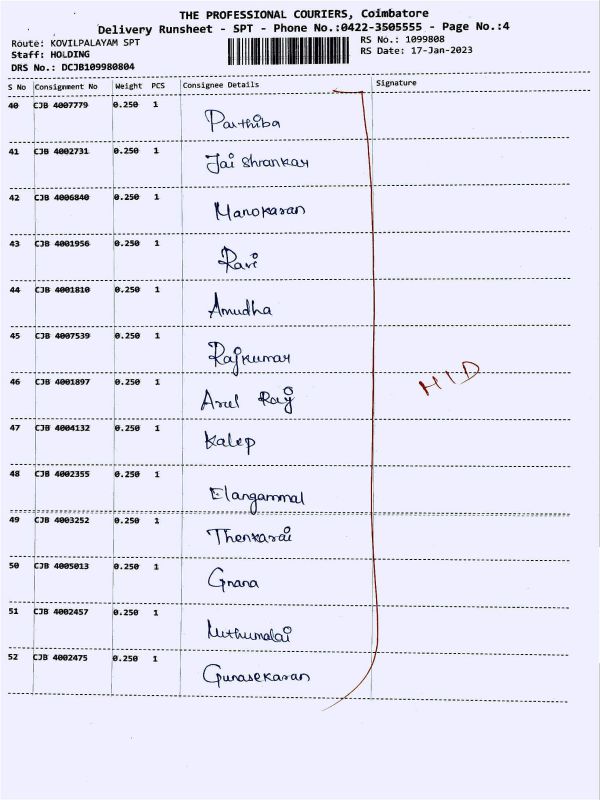 THE PROFESSIONAL COURIERS, Coimbatore
Delivery Runsheet - SPT - Phone No.:0422-3505555 - Page No.:4
Route: KOVILPALAYAM SPT RS No.: 1099808
Staff: HOLDING RS Date: 17-Jan-2023
DRS No.: DCJB109980804
S No Consignment No Weight PCS Consignee Details Signature
40 CJB 4007779 0.250 1 Parthiba
41 CJB 4002731 0.250 1 Jai Shrankar
42 CJB 4006840 0.250 1 Manokaran
43 CJB 4001956 0.250 1 Ravi
44 CJB 4001810 0.250 1 Amudha
45 CJB 4007539 0.250 1 Rajkumar
46 CJB 4001897 0.250 1 Arul Raj
HID
47 CJB 4004132 0.250 1 Kalep
48 CJB 4002355 0.250 1 Elangammal
49 CJB 4003252 0.250 1 Thenkarai
50 CJB 4005013 0.250 1 Gnana
51 CJB 4002457 0.250 1 Muthumalai
52 CJB 4002475 0.250 1 Gunasekaran